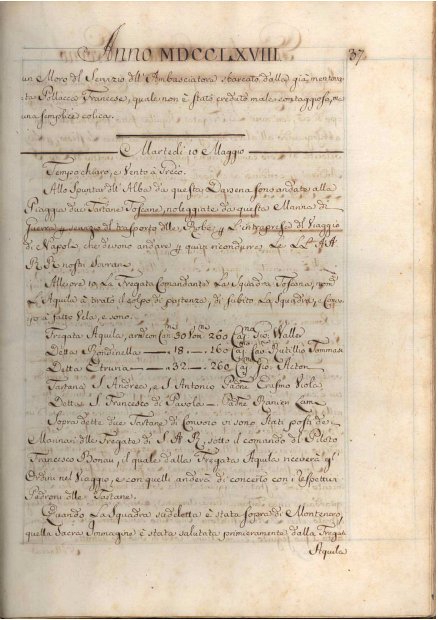 Anno MDCCLXVIII. 37
un Moro del Servizio dell'Ambasciatora sbarcato, dalla già mentova-
ta Pollacca Francese, quale non è stato creduto male contaggioso, ma
una semplice colica.
Martedì 10 Maggio
Tempo chiaro, e Vento a Greco.
Allo Spuntar dell'Alba da questa Darsena sono andate alla
Piaggia due Tartane Toscane, noleggiate da questa Marina di
Guerra p servizio di trasporto delle Robe, p L'intrapresa del Viaggio
di Napoli, che devono andare p quivi ricondurre le LL: AA:
R. R. nostri Sovrani.
Alle ore 10 La Fregata Comandante La Squadra Toscana, nom.
L'Aquila à tirato il colpo di partenza, di subito La Squadra, e Convo-
jo à fatto Vela, e sono.
Fregata Aquila, armata Can. 30 Uom. 260 Cap. Gio: Waller
Detta Rondinella — 18 — 160 Cap. Rutillio Tommasi
Detta Etruria — 32 — 260 Cap. Gio: Acton
Tartana S. Andrea, e S. Antonio Padne Erasmo Viola
Detta S. Francesco di Pavola — Padne Ranieri
Sopra dette due Tartane di Convoio vi sono Stati posti de
Marinari delle Fregate di S. A. R., sotto il comando del Piloto
Francesco Bonau, il quale dalla Fregata Aquila riceverà gl'
Ordini nel Viaggio, e con quelli anderà di concerto con i respettivi
Padroni delle Tartane.
Quando La Squadra sudetta è stata sopra di Montenero,
quella Sacra Immagine è stata salutata primieramente dalla Fregata
Aquila